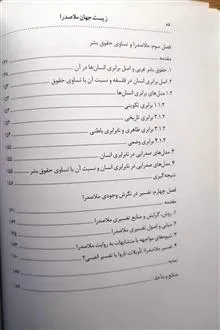 ۷۵ زیست جهان ملاصدرا
فصل سوم: ملاصدرا و تساوی حقوق بشر
مقدمه
۱. حقوق بشر غربی و اصل برابری انسان‌ها در آن
۲. اصل برابری انسان در فلسفه و نسبت آن با تساوی حقوق
۳. مدل‌های برابری انسان‌ها
۱.۳ برابری تکوینی
۲.۳ برابری تاریخی
۳.۳ برابری ظاهری و نابرابری باطنی
۴.۳ برابری وضعی
مدل‌های صدرایی در نابرابری انسان
مدل‌های صدرایی در نابرابری انسان و نسبت آن با تساوی حقوق بشر
نتیجه‌گیری
فصل چهارم: تفسیر در نگرش وجودی ملاصدرا
مقدمه
۱. روش، گرایش و منابع تفسیری ملاصدرا
۲. مبانی و اصول تفسیری ملاصدرا
۳. شیوه‌های مواجهه با متشابهات به روایت ملاصدرا
۴. تفسیر ملاصدرا: تأویلات ناروا یا تفسیر انفسی؟
نمایه
منابع و مآخذ